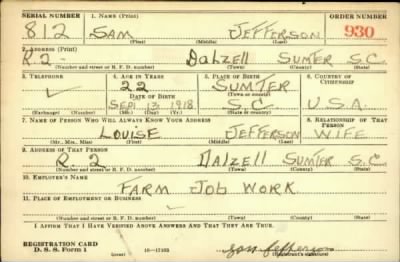 SERIAL NUMBER 1. NAME (Print) ORDER NUMBER
812 SAM JEFFERSON 930
(First) (Middle) (Last)
2. ADDRESS (Print)
R2- Dalzell SUMTER S.C.
(Number and street or R. F. D. number) (Town) (County) (State)
3. TELEPHONE 4. AGE IN YEARS 5. PLACE OF BIRTH 6. COUNTRY OF CITIZENSHIP
22 SUMTER
DATE OF BIRTH (Town or county)
SEPT 13 1918 S.C. U.S.A.
(Exchange) (Number) (Mo.) (Day) (Yr.) (State or country)
7. NAME OF PERSON WHO WILL ALWAYS KNOW YOUR ADDRESS 8. RELATIONSHIP OF THAT PERSON
LOUISE JEFFERSON WIFE
(Mr., Mrs., Miss) (First) (Middle) (Last)
9. ADDRESS OF THAT PERSON
R.2 Dalzell SUMTER S.C.
(Number and street or R. F. D. number) (Town) (County) (State)
10. EMPLOYER'S NAME
FARM JOB WORK
11. PLACE OF EMPLOYMENT OR BUSINESS
(Number and street or R. F. D. number) (Town) (County) (State)
I AFFIRM THAT I HAVE VERIFIED ABOVE ANSWERS AND THAT THEY ARE TRUE.
REGISTRATION CARD
D. S. S. Form 1 16-17105 Jefferson
(Registrant's signature)